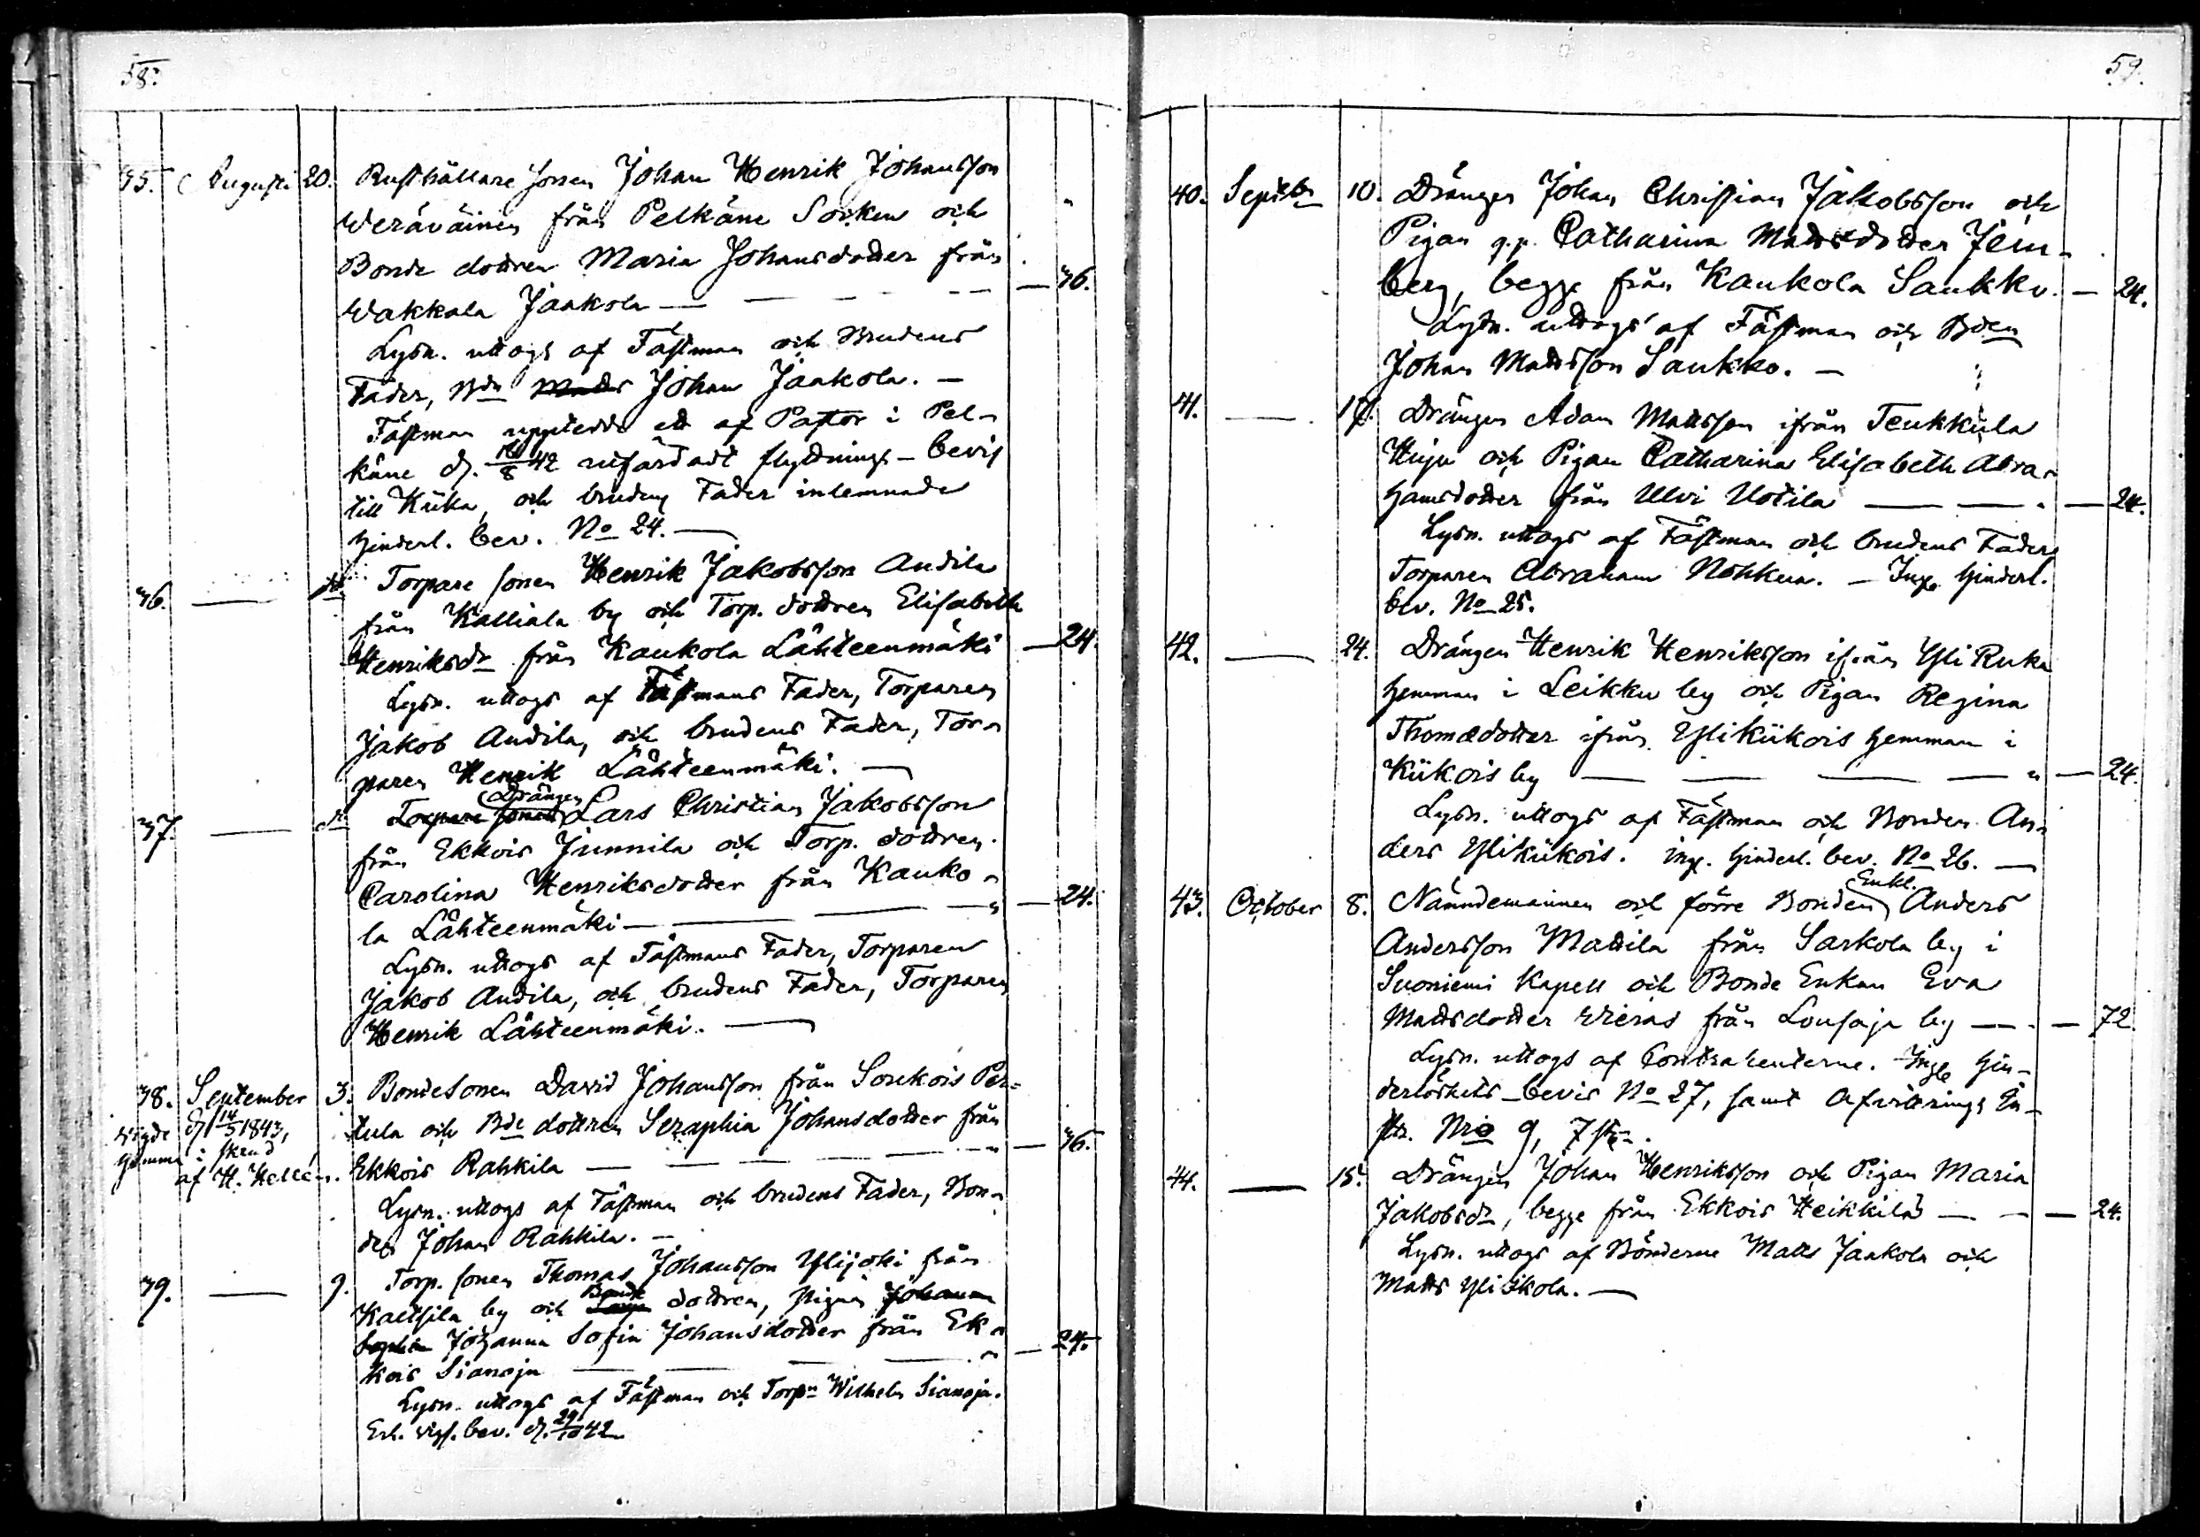 58.
35. Augusti 20. Rusthållare sonen Johan Henrik Johansson
Weräväinen från Pelkäne Socken och
Bonde dottren Maria Johansdotter från
Wakkala Jaakola — — — — 36.
Lysn. uttogs af Fästman och Brudens
Fader, Bdn Matts Johan Jaakola. —
Fästman uppteddt ett af Pastor i Pel-
käne d. 16/8 42 utfärdadt flyttnings-bevis
till Kiika, och brudens Fader inlemnade
hinderl. bev. No 24. —
36. — do Torpare sonen Henrik Jakobsson Andila
från Kalliala by och Torp. dottren Elisabeth
Henriksdr från Kaukola Lähteenmäki — 24.
Lysn. uttogs af Fästmans Fader, Torparen
Jakob Andila, och brudens Fader, Tor-
paren Henrik Lähteenmäki. —
Drängen
37. — do Torpare sonen Lars Christian Jakobsson
från Ekkois Junnila och Torp. dottren
Carolina Henriksdotter från Kauko-
la Lähteenmäki — — — 24.
Lysn. uttogs af Fästmans Fader, Torparen
Jakob Andila, och brudens Fader, Torparen
Henrik Lähteenmäki. —
38. September 3. Bondesonen David Johansson från Soukois Per-
Wigde d. 14/5 1843, tula och Bde dottren Seraphia Johansdotter från
hemma i Ekkois Rahkila — — — 36.
af H. Hellén. Lysn. uttogs af Fästman och brudens Fader, Bon-
den Johan Rahkila. —
39. — 9. Torp. sonen Thomas Johansson Ylijoki från
Bonde
Kaltsila by och Torpe dottren, pigan Johanna
Sophia Johanna Sofia Johansdotter från Ek-
kois Sianoja — — — 24.
Lysn. uttogs af Fästman och Torpn Wilhelm Sianoja.
Erh. vigs. bev. d. 29/10 42
59.
40. Septebr 10. Drängen Johan Christian Jakobsson och
Pigan q.p. Catharina Mattsdotter Jern-
berg, begge från Kaukola Saukko. — 24.
Lysn. uttogs af Fästman och Bden
Johan Mattsson Saukko. —
41. — 17. Drängen Adam Mattsson ifrån Teukkula
Huju och Pigan Catharina Elisabeth Abra-
hamsdotter från Ulvi Uotila — — — 24.
Lysn. uttogs af Fästman och brudens Fader
Torparen Abraham Nohkua. — Inge hinderl.
bev. No 25.
42. — 24. Drängen Henrik Henriksson ifrån Yli Ruka
hemman i Leikku by och Pigan Regina
Thomædotter ifrån Ylikiikois hemman i
Kiikois by — — — — 24.
Lysn. uttogs af Fästman och Bonden An-
ders Ylikiikois. ing. hinderl. bev. No 26. —
Enkl.
43. October 8. Nämndemannen och förre Bonden Anders
Andersson Mattila från Sarkola by i
Suoniemi Kapell och Bonde Enkan Eva
Mattsdotter Wieras från Lousaja by — — 72.
Lysn. uttogs af Contrahenterne. Inge hin-
derlöshets-bevis No 27, samt Afvittrings In-
str. Nrio 9, 7 st.
44. — 15. Drängen Johan Henriksson och Pigan Maria
Jakobsdr, begge från Ekkois Heikkilä — — 24.
Lysn. uttogs af Bönderne Matts Jaakola och
Matts Yliskola. —